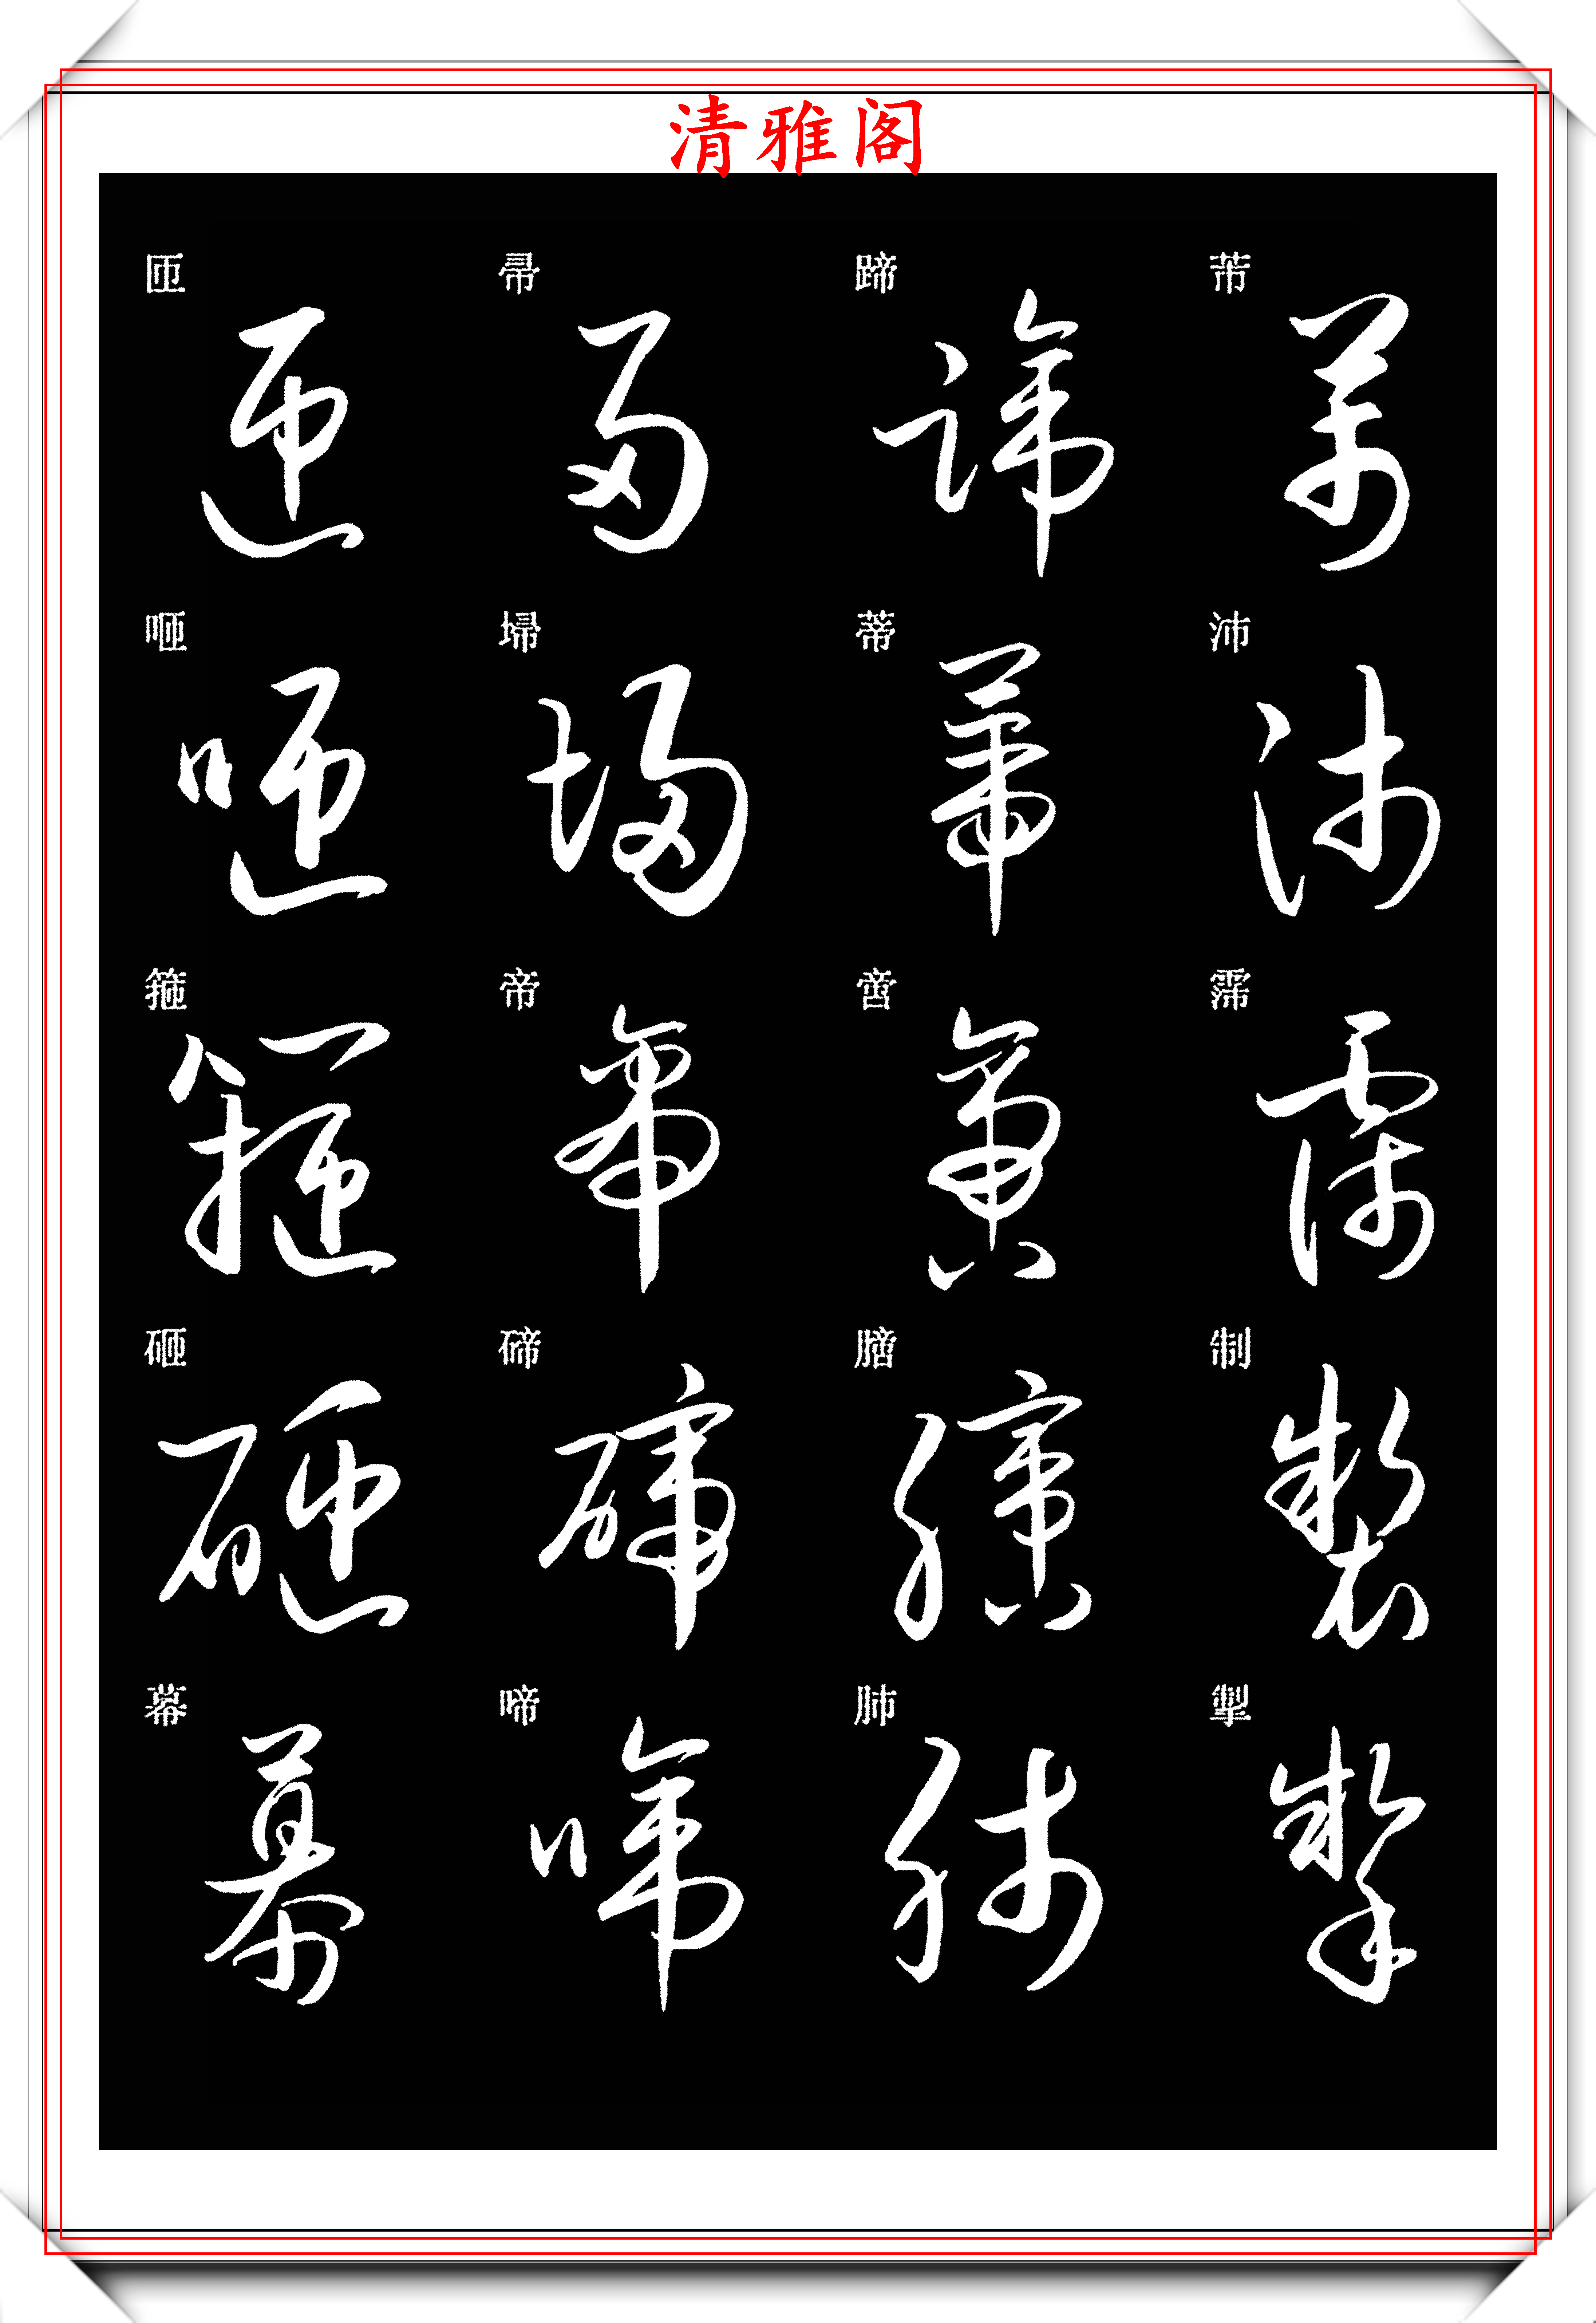 清雅阁
匝 咂 箍 砸 幕
帚 埽 帝 碲 啼
蹄 蒂 啻 膪 肺
芾 沛 霈 制 掣